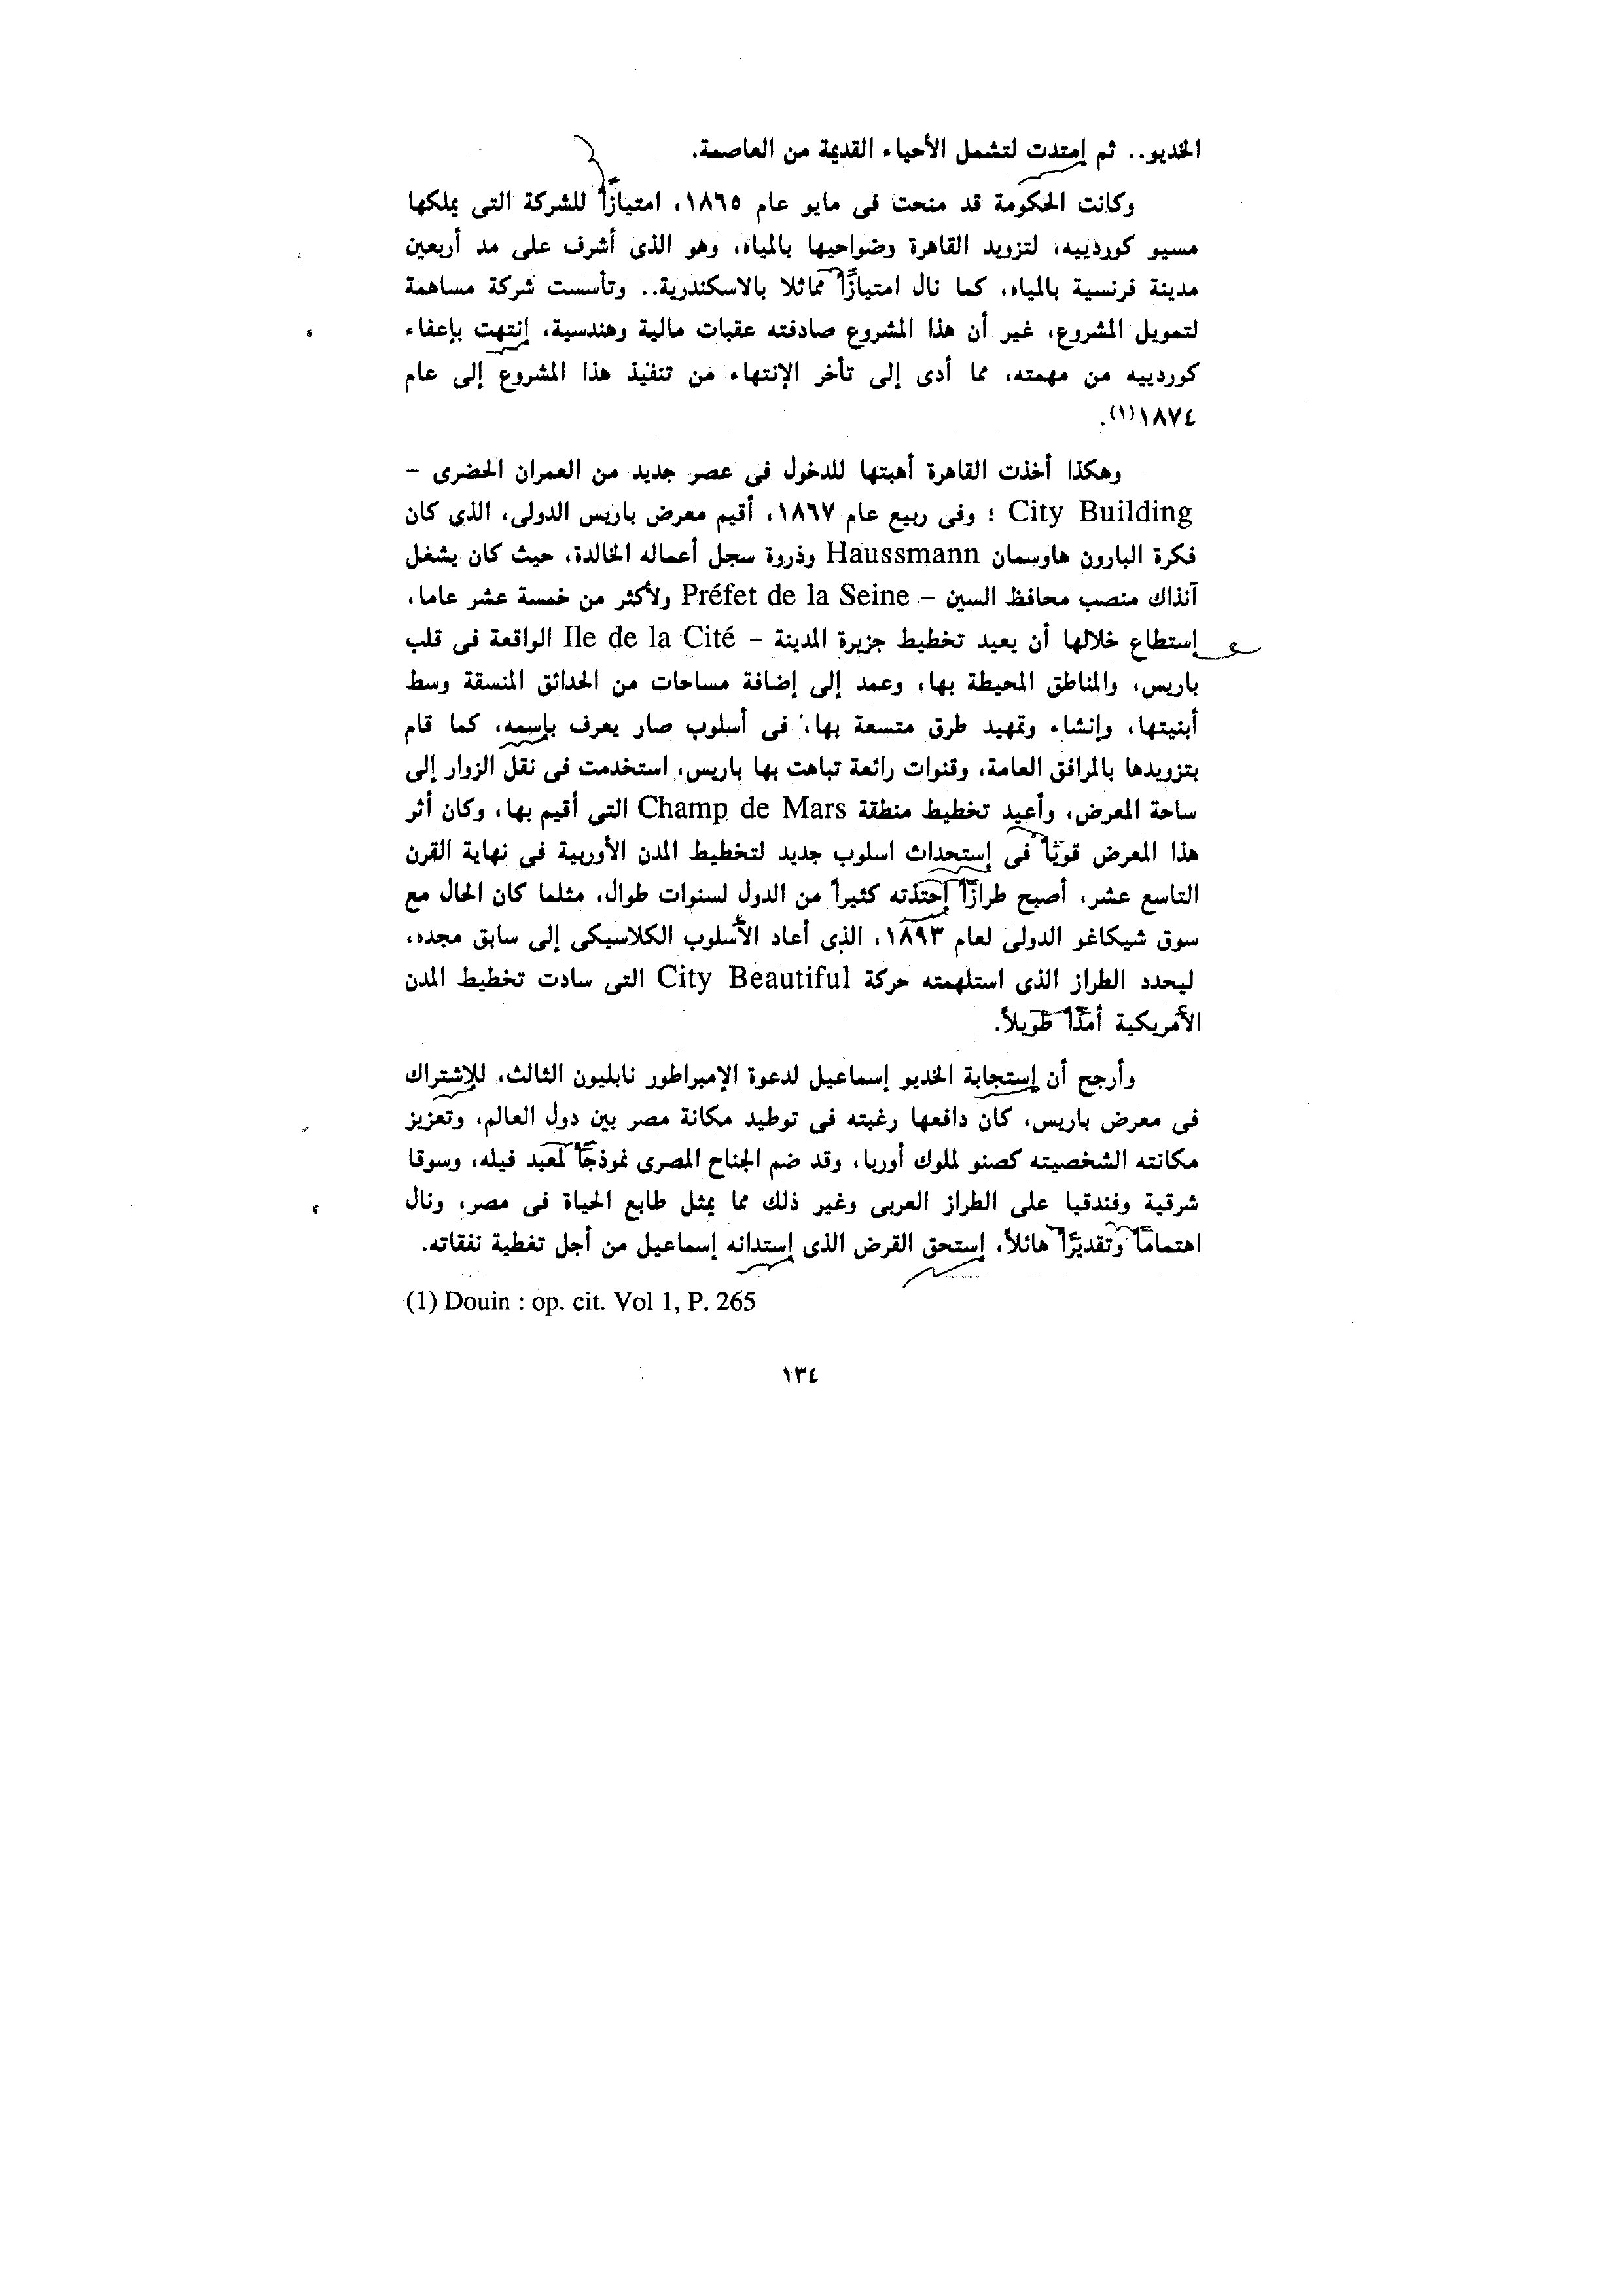 الخديو.. ثم إمتدت لتشمل الأحياء القديمة من العاصمة.
وكانت الحكومة قد منحت فى مايو عام ١٨٦٥، امتيازًا للشركة التى يملكها
مسيو كوردييه، لتزويد القاهرة وضواحيها بالمياه، وهو الذى أشرف على مد أربعين
مدينة فرنسية بالمياه، كما نال امتيازًا مماثلا بالاسكندرية.. وتأسست شركة مساهمة
لتمويل المشروع، غير أن هذا المشروع صادفته عقبات مالية وهندسية، إنتهت بإعفاء
كوردييه من مهمته، مما أدى إلى تأخر الإنتهاء من تنفيذ هذا المشروع إلى عام
١٨٧٤(١).
وهكذا أخذت القاهرة أهبتها للدخول فى عصر جديد من العمران الحضرى –
City Building ؛ وفى ربيع عام ١٨٦٧، أقيم معرض باريس الدولى، الذي كان
فكرة البارون هاوسمان Haussmann وذروة سجل أعماله الخالدة، حيث كان يشغل
آنذاك منصب محافظ السين – Préfet de la Seine ولأكثر من خمسة عشر عاما،
إستطاع خلالها أن يعيد تخطيط جزيرة المدينة – Ile de la Cité الواقعة فى قلب
باريس، والمناطق المحيطة بها، وعمد إلى إضافة مساحات من الحدائق المنسقة وسط
أبنيتها، وإنشاء وتمهيد طرق متسعة بها، فى أسلوب صار يعرف بإسمه، كما قام
بتزويدها بالمرافق العامة، وقنوات رائعة تباهت بها باريس، استخدمت فى نقل الزوار إلى
ساحة المعرض، وأعيد تخطيط منطقة Champ de Mars التى أقيم بها، وكان أثر
هذا المعرض قويًا فى إستحداث اسلوب جديد لتخطيط المدن الأوربية فى نهاية القرن
التاسع عشر، أصبح طرازًا إحتذته كثيراً من الدول لسنوات طوال، مثلما كان الحال مع
سوق شيكاغو الدولى لعام ١٨٩٣، الذى أعاد الأسلوب الكلاسيكى إلى سابق مجده،
ليحدد الطراز الذى استلهمته حركة City Beautiful التى سادت تخطيط المدن
الأمريكية أمدًا طويلاً.
وأرجح أن إستجابة الخديو إسماعيل لدعوة الإمبراطور نابليون الثالث، للإشتراك
فى معرض باريس، كان دافعها رغبته فى توطيد مكانة مصر بين دول العالم، وتعزيز
مكانته الشخصيته كصنو لملوك أوربا، وقد ضم الجناح المصرى نموذجًا لمعبد فيله، وسوقا
شرقية وفندقيا على الطراز العربى وغير ذلك مما يمثل طابع الحياة فى مصر، ونال
اهتمامًا وتقديرًا هائلاً، إستحق القرض الذى إستدانه إسماعيل من أجل تغطية نفقاته.
(1) Douin : op. cit. Vol 1, P. 265
١٣٤